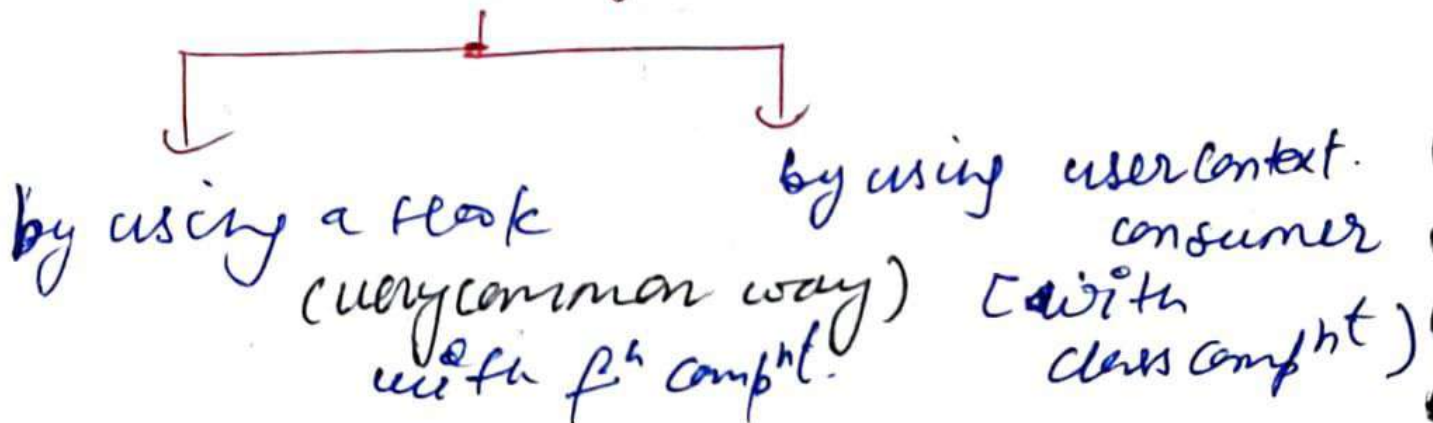 by using a Hook
(very common way)
with fⁿ compⁿt.
by using userContext.
consumer
(with
class compⁿt)